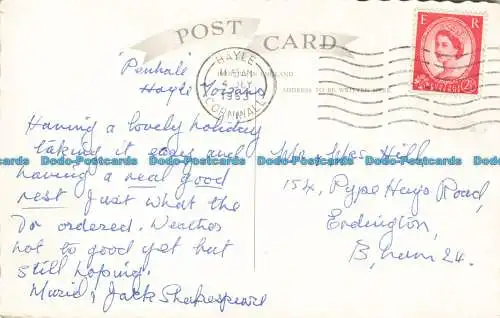 POST CARD
"Penhale"
Hayle Towans
HAYLE
4 JLY
1953
CORNWALL
ADDRESS TO BE WRITTEN HERE
E R
Having a lovely holiday
taking it easy and
having a real good
rest Just what the
Dr ordered. Weather
not to good yet but
still hoping.
Muriel & Jack Shakespeare
Mr & Mrs Hill,
154, Pype Hayes Road,
Erdington,
B'ham 24.
Dodo-Postcards Dodo-Postcards Dodo-Postcards Dodo-Postcards Dodo-Postcards Dodo-Postcards